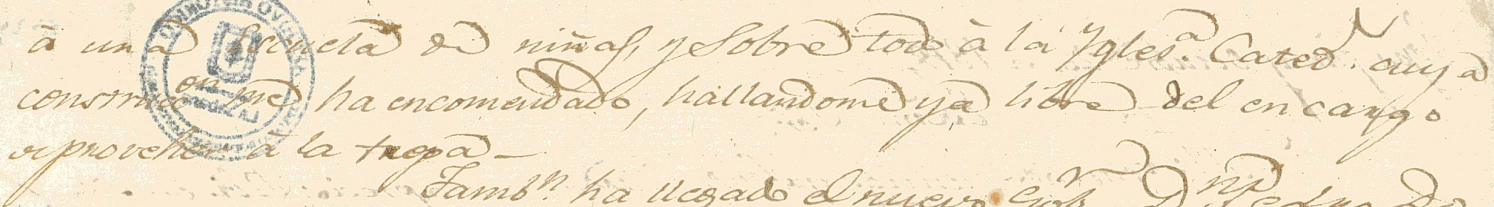 á una Escuela de niñas, y sobre todo à la Ygles.ª Cated.l cuya
construc.on me ha encomendado, hallandome ya libre del encargo
de proveher à la tropa_
Tamb.n ha llegado el nuevo Gob.r D.n Pedro de